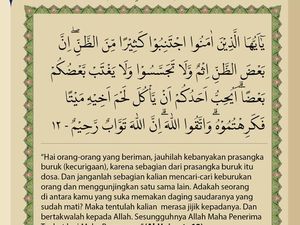 يٰٓاَيُّهَا الَّذِيْنَ اٰمَنُوا اجْتَنِبُوْا كَثِيْرًا مِّنَ الظَّنِّۖ اِنَّ
بَعْضَ الظَّنِّ اِثْمٌ وَّلَا تَجَسَّسُوْا وَلَا يَغْتَبْ بَّعْضُكُمْ
بَعْضًاۗ اَيُحِبُّ اَحَدُكُمْ اَنْ يَّأْكُلَ لَحْمَ اَخِيْهِ مَيْتًا
فَكَرِهْتُمُوْهُۗ وَاتَّقُوا اللّٰهَۗ اِنَّ اللّٰهَ تَوَّابٌ رَّحِيْمٌ - ١٢
"Hai orang-orang yang beriman, jauhilah kebanyakan prasangka
buruk (kecurigaan), karena sebagian dari prasangka buruk itu
dosa. Dan janganlah sebagian kalian mencari-cari keburukan
orang dan menggunjingkan satu sama lain. Adakah seorang
di antara kamu yang suka memakan daging saudaranya yang
sudah mati? Maka tentulah kalian merasa jijik kepadanya. Dan
bertakwalah kepada Allah. Sesungguhnya Allah Maha Penerima